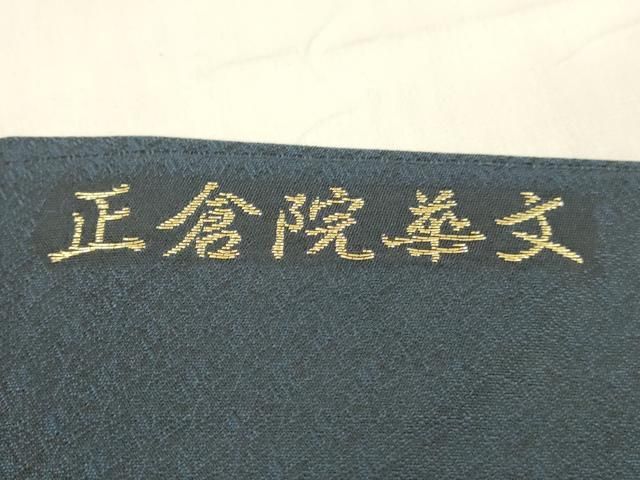 正倉院華文